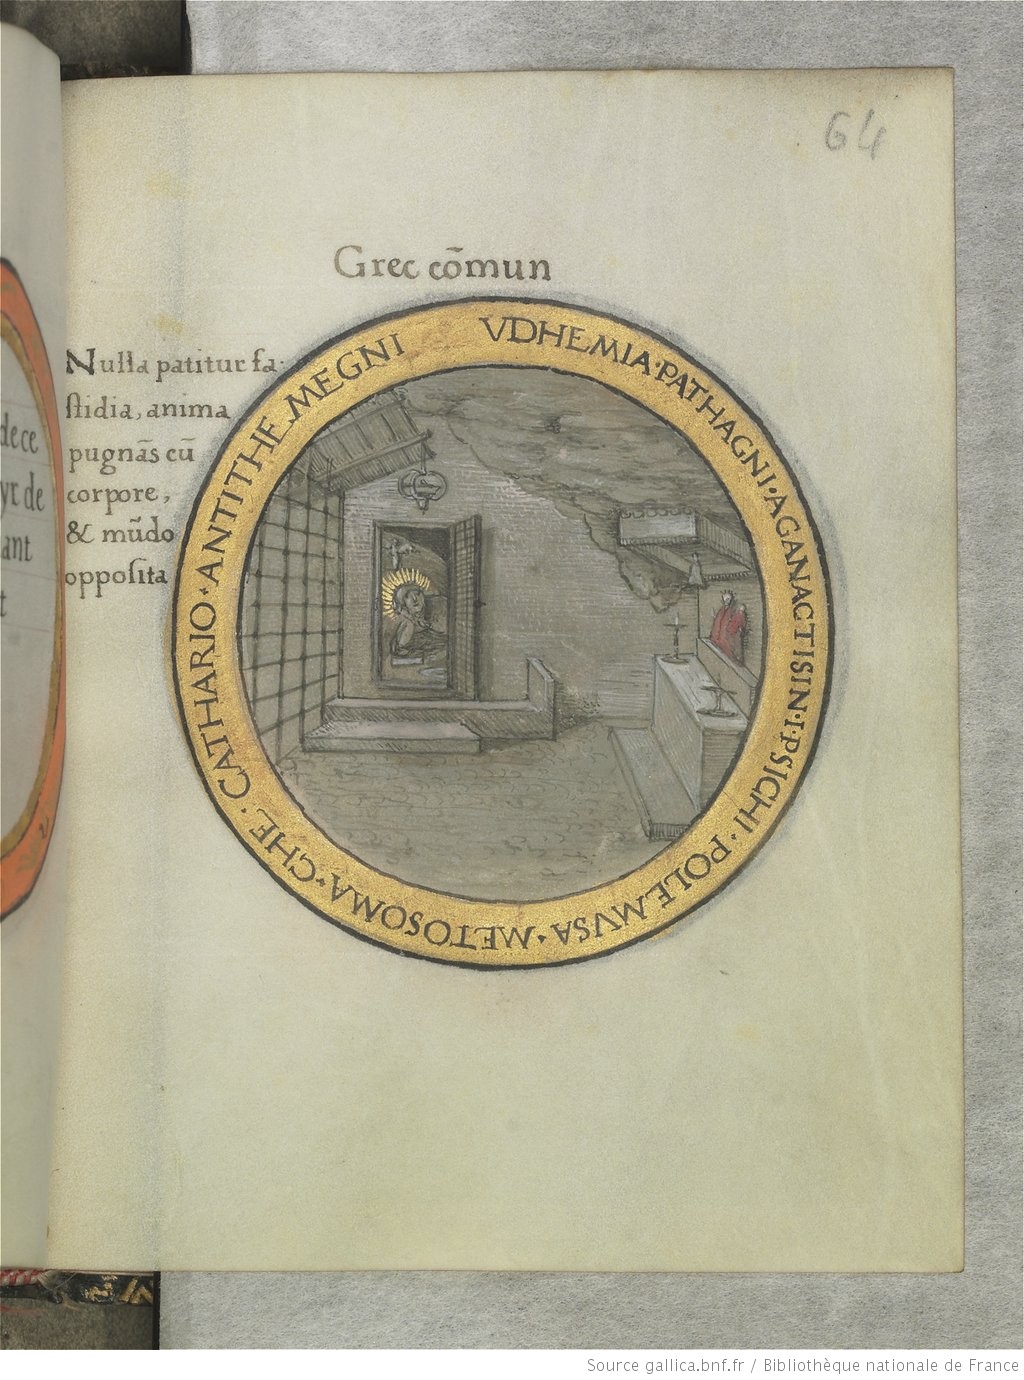 64
Grec cōmun
VDHEMIA·PATHAGNI·AGANACTISIN·I·PSICHI·POLEMVSA·METOSOMA·CHE·CATHARIO·ANTITHEMEGNI
Nulla patitur fa-
stidia, anima
pugnās cū
corpore,
& mūdo
opposita
de ce
yr de
ant
t
Source gallica.bnf.fr / Bibliothèque nationale de France